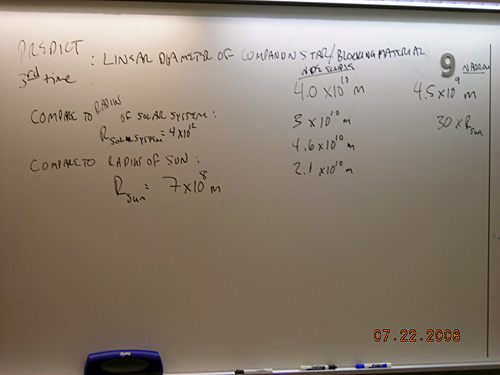 PREDICT : LINEAR DIAMETER OF COMPANION STAR/BLOCKING MATERIAL
3rd time
WIDE ECLIPSE
9
NARROW
4.0 x 10^10 m
4.5 x 10^9 m
COMPARE TO RADIUS OF SOLAR SYSTEM :
R solar system = 4 x 10^12
3 x 10^10 m
30 x R sun
4.6 x 10^10 m
COMPARE TO RADIUS OF SUN :
2.1 x 10^10 m
R sun = 7 x 10^8 m
07.22.2009